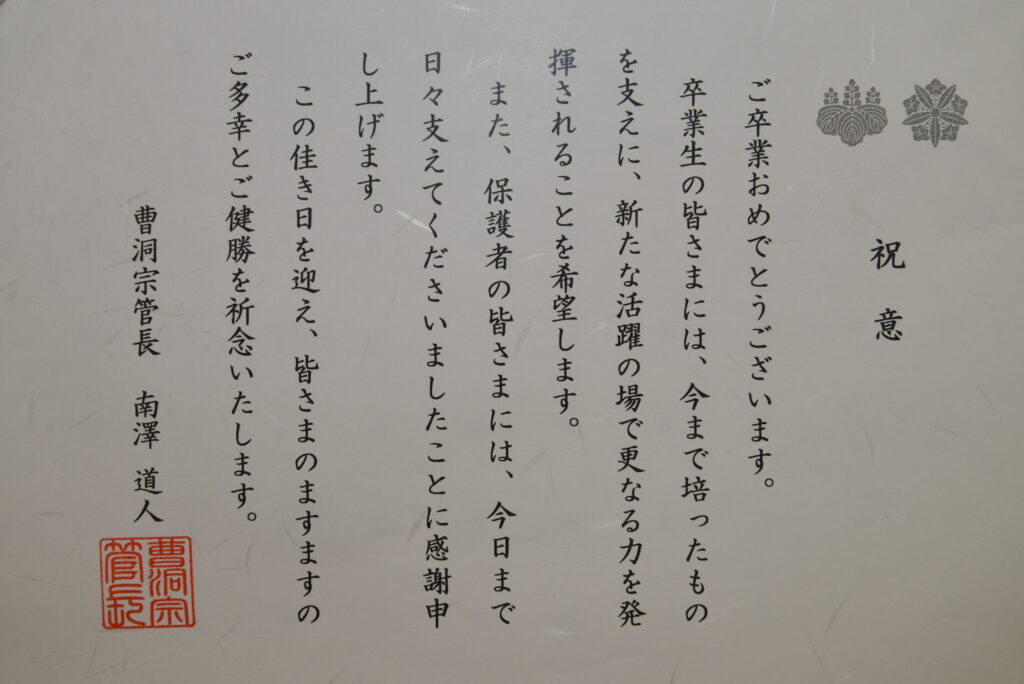 祝意
ご卒業おめでとうございます。
卒業生の皆さまには、今まで培ったもの
を支えに、新たな活躍の場で更なる力を発
揮されることを希望します。
また、保護者の皆さまには、今日まで
日々支えてくださいましたことに感謝申
し上げます。
この佳き日を迎え、皆さまのますますの
ご多幸とご健勝を祈念いたします。
曹洞宗管長 南澤 道人
曹洞宗
管長印